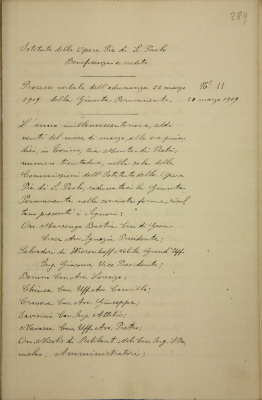 289
Istituto delle Opere Pie di S. Paolo
Beneficenza e credito
Processo verbale dell'adunanza 22 marzo
N° 11
1909 della Giunta Permanente.
20 marzo 1909
L'anno millenovecentonove, addì
venti del mese di marzo, alle ore quin-
dici, in Torino, Via Monte di Pietà,
numero trentadue, nella sala delle
Commissioni dell'Istituto delle Opere
Pie di S. Paolo, radunatasi la Giunta
Permanente nelle consuete forme, risul-
tano presenti i Signori:
On. Marsengo Bastia Cav. di Gran
Croce Avv. Ignazio, Presidente;
Salvadori di Wiesenhoff Nobile Grand'Uff.
Ing. Giacomo, Vice Presidente;
Bonino Cav. Avv. Lorenzo;
Chinea Cav. Uff. Avv. Camillo;
Cravera Cav. Avv. Giuseppe;
Cav. Ing. Attilio;
Navassa Cav. Uff. Avv. Pietro;
On. di Nob. Cav. Ing. Sta-
nislao, Amministratori;